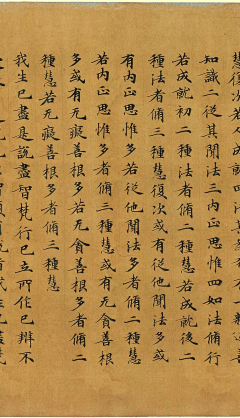 慧復次若人成就四法
知識二從其聞法三內正思惟四如法脩行
若成就初二種法者脩二種慧若成就後二
種法者脩三種慧復次或有從他聞法多或
有內正思惟多若從他聞法多者脩二種慧
若內正思惟多者脩三種慧或有无貪善根
多或有无癡善根多若无貪善根多者脩二
種慧若无癡善根多者脩三種慧
我生已盡是說盡智梵行已立所作已辯不